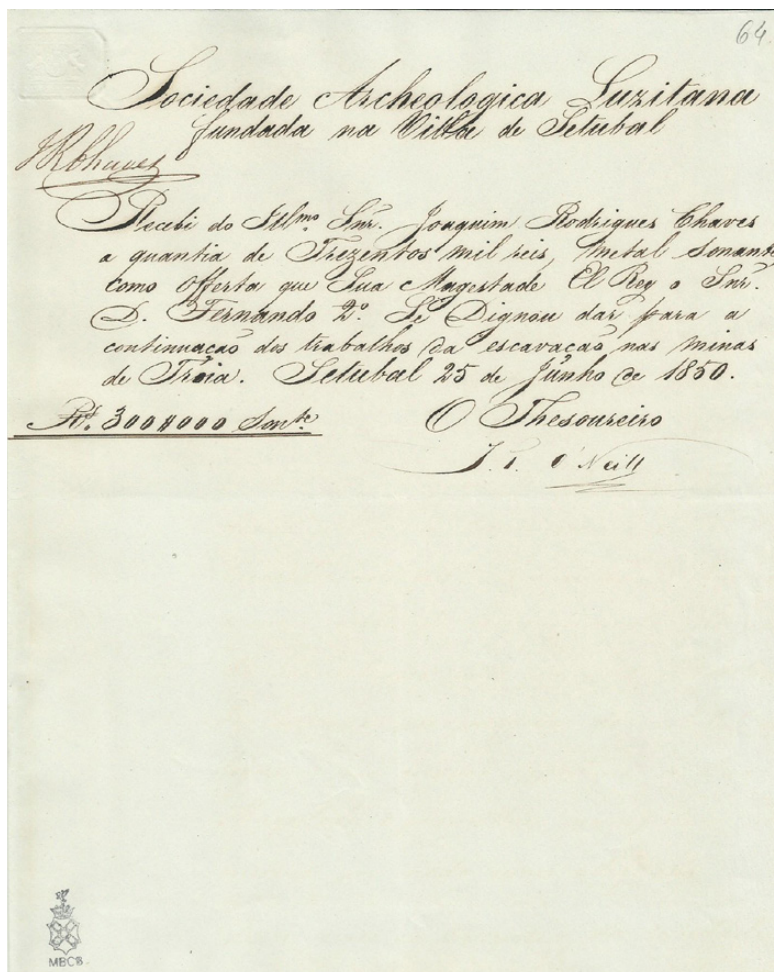 64
Sociedade Archeologica Luzitana
fundada na Villa de Setubal
JRChaves
Recebi do Illmo. Snr. Joaquim Rodrigues Chaves
a quantia de Trezentos mil reis, metal sonante
como Offerta que Sua Magestade El Rey o Snr.
D. Fernando 2º. Se Dignou dar para a
continuação dos trabalhos da escavação nas minas
de Troia. Setubal 25 de Junho de 1850.
Rs. 300$000 Sonte.
O Thesoureiro
J. T. O'Neill
MBCB